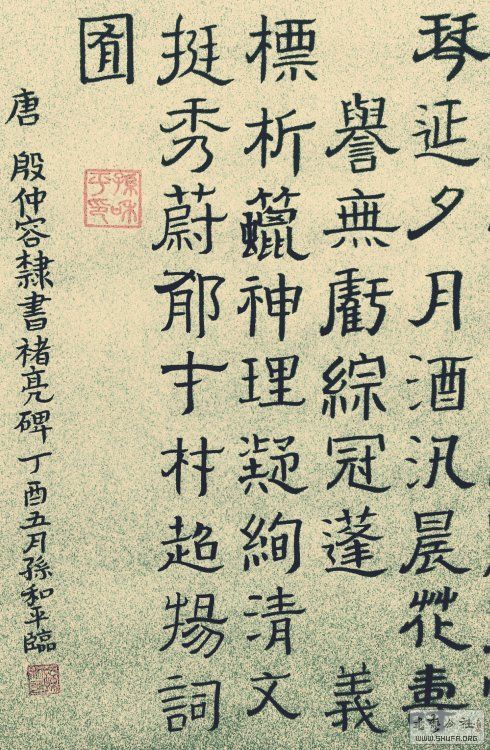 琴延夕月酒汎晨花畫
譽無虧綜冠蓬 義
標析蠟神理凝絢清文
挺秀蔚郁才材超揚詞
囿
唐 殷仲容隸書褚亮碑丁酉五月孫和平臨
孫和平印
WWW.SHUFA.ORG